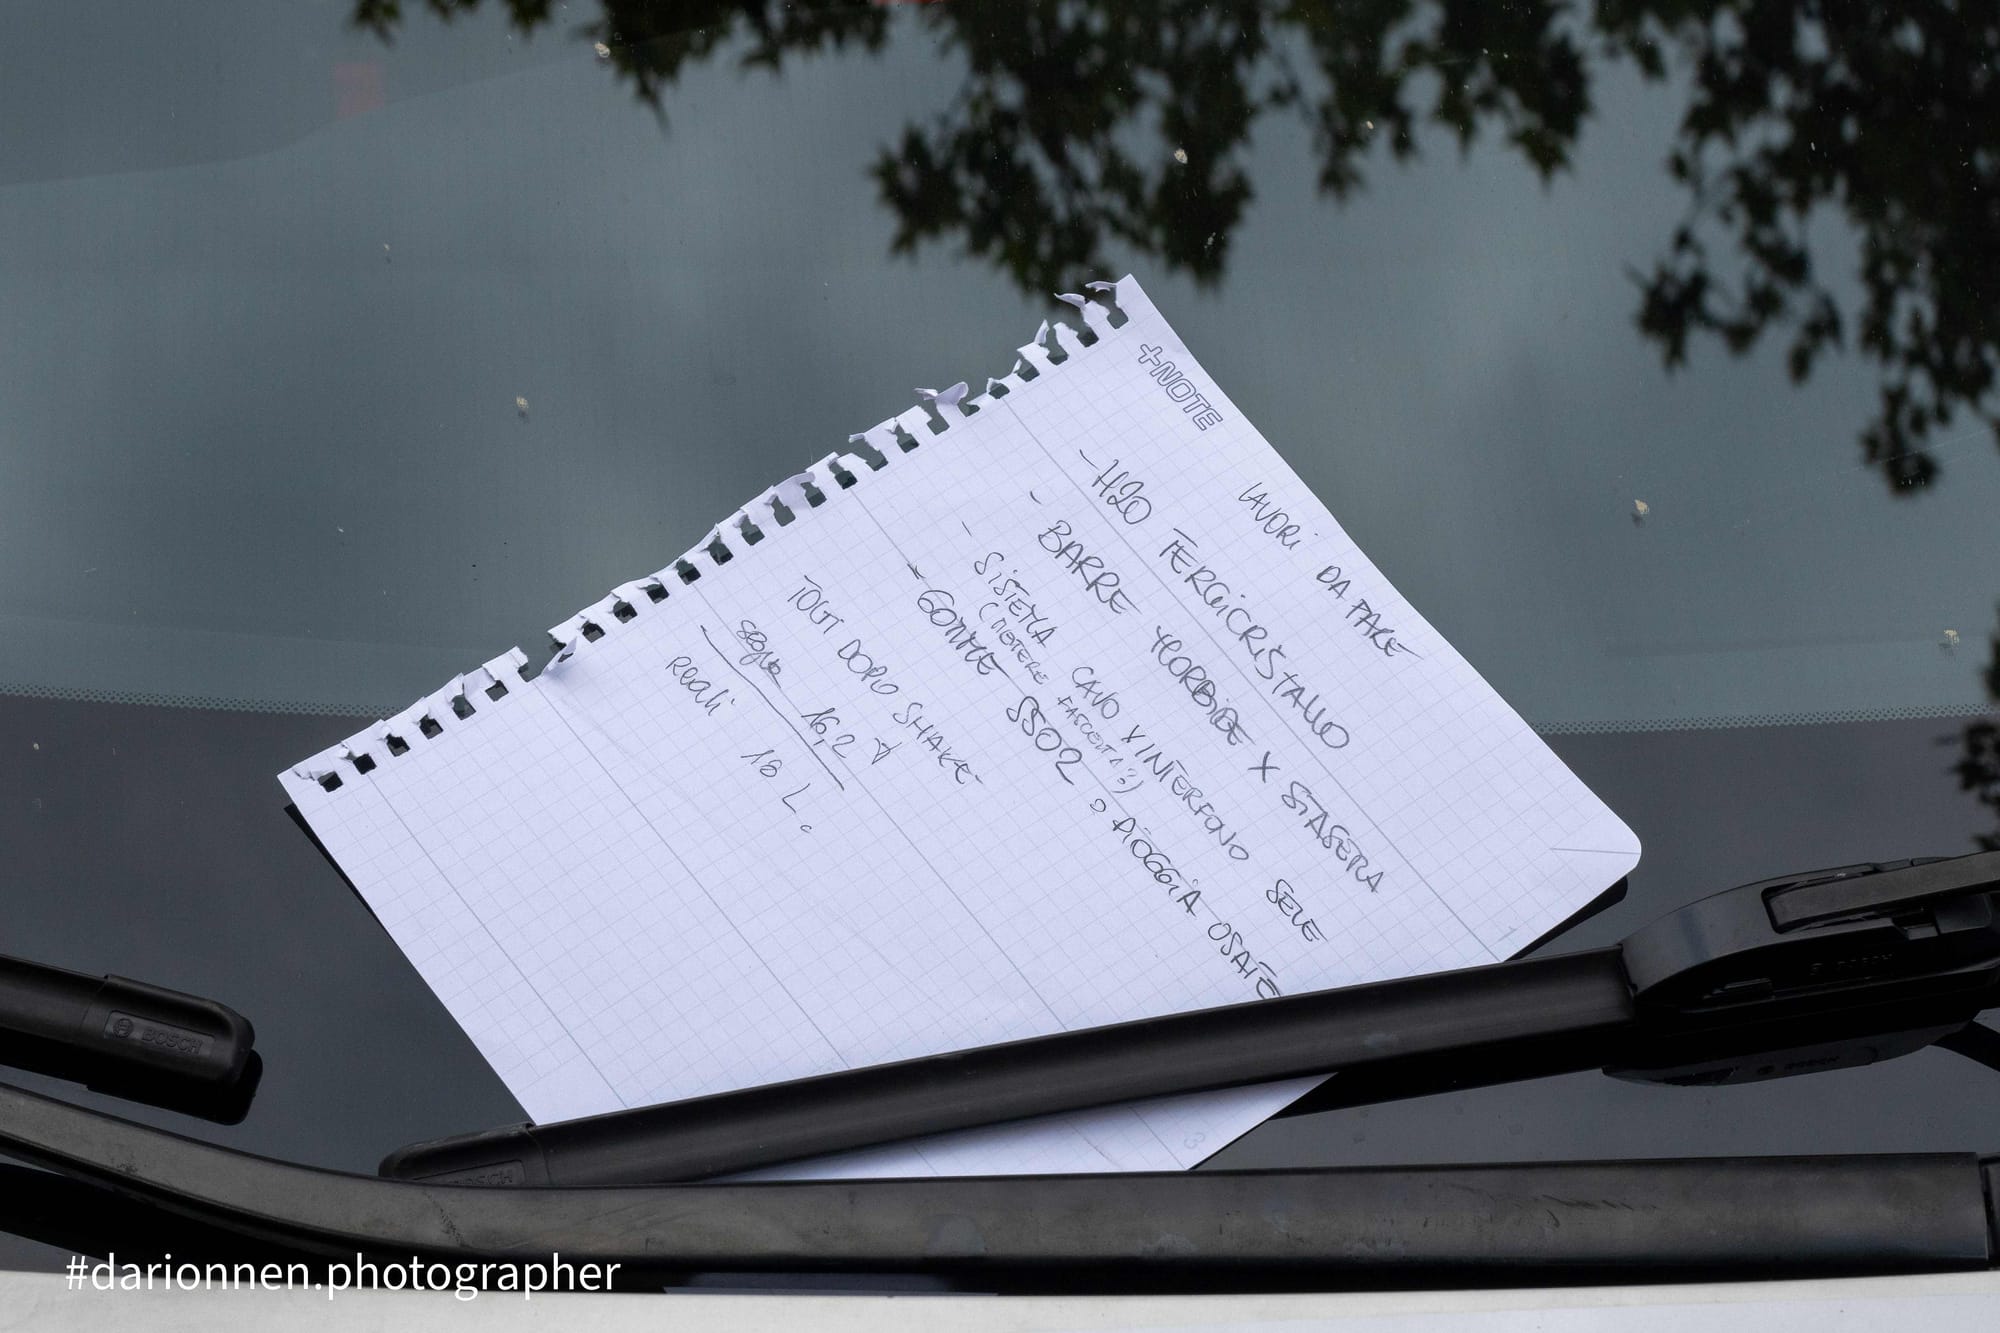 +NOTE
LAVORI DA FARE
- H2O TERGICRISTALLO
- BARRE MORBIDE X STASERA
- SISTEMA CAVO X INTERFONO SELE
(METERE FASCETTA?)
- GOMME SSO2 o PIOGGIA USATE
TOLTI DOPO SHAKE
segna 16,2
reali 18 L.
BOSCH
BOSCH
BOSCH
#darionnen.photographer